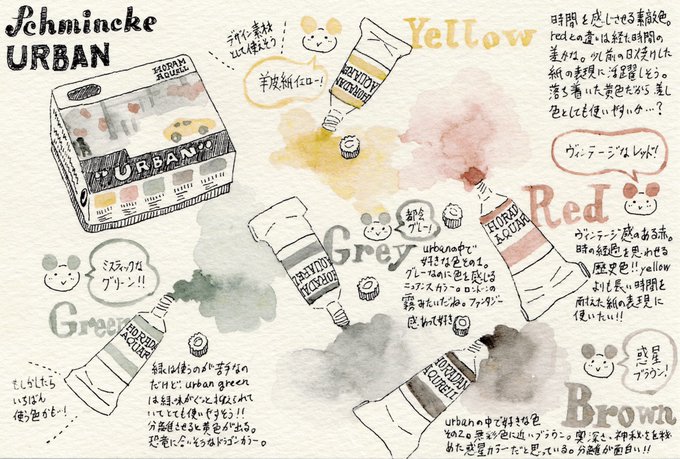 Schmincke
URBAN
HORADAM
AQUARELL
"URBAN"
デザイン素材
として使えそう
羊皮紙イエロー!
Yellow
HORADAM
AQUAREL
時間を感じさせる素敵色。
redとの違いは経た時間の
差かな。少し前の日火焼けした
紙の表現に活躍しそう。
落ち着いた黄色だから差し
色としても使いやすいか…?
ヴィンテージなレッド!
Red
HORADAM
AQUAR
ヴィンテージ感のある赤。
時の経過を思わせる
歴史色!!yellow
よりも長い時間を
耐えた紙の表現に
使いたい!!
都会
グレー!
Grey
HORADA
AQUAREL
urbanの中で
好きな色その1。
グレーなのに色を感じる
ニュアンスカラー。ロンドンの
霧みたいだね。ファンタジー
感あって好き
ミスティックな
グリーン!!
Green
HORADA
AQUAR
もしかしたら
いちばん
使う色かも…!
緑は使うのが苦手なの
だけど、urban green
は緑味がぐっと抑えられて
いてとても使いやすそう!!
分離させると黄色が出る。
恐竜に合いそうなドラゴンカラー。
惑星
ブラウン!
Brown
HORADAM
AQUARELL
urbanの中で好きな色
その2。無彩色に近いブラウン。奥深さ、神秘さを秘
めた惑星カラーだと思っている。分離が面白い!!